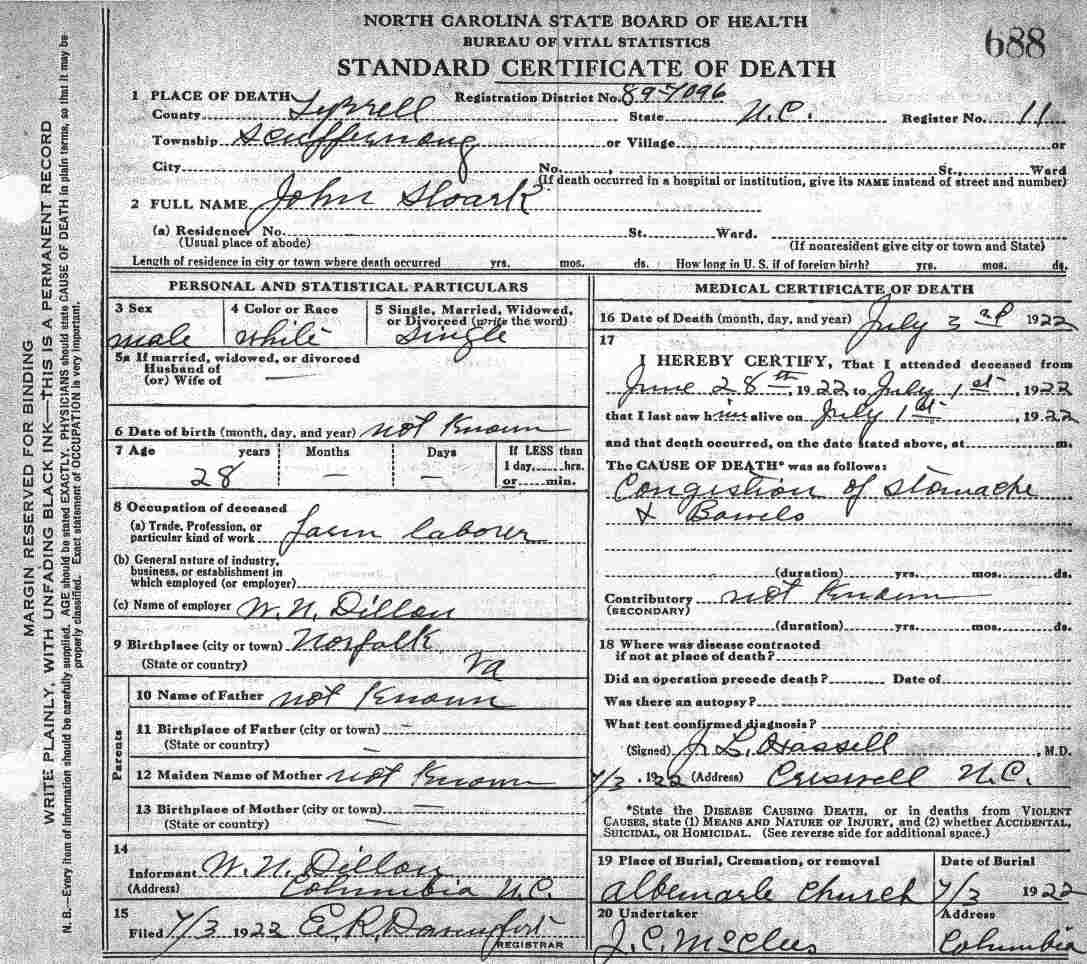 NORTH CAROLINA STATE BOARD OF HEALTH
BUREAU OF VITAL STATISTICS
688
STANDARD CERTIFICATE OF DEATH
1 PLACE OF DEATH Registration District No. 89-7096
County Tyrrell State N.C. Register No. 11
Township Scuppernong or Village or
City No. , St., Ward
(If death occurred in a hospital or institution, give its NAME instead of street and number)
2 FULL NAME John
(a) Residence. No. St. Ward.
(Usual place of abode) (If nonresident give city or town and State)
Length of residence in city or town where death occurred yrs. mos. ds. How long in U. S. if of foreign birth? yrs. mos. ds.
PERSONAL AND STATISTICAL PARTICULARS
3 Sex 4 Color or Race 5 Single, Married, Widowed,
or Divorced (write the word)
male white Single
5a If married, widowed, or divorced
Husband of
(or) Wife of —
6 Date of birth (month, day, and year) not Known
7 Age years Months Days If LESS than
1 day, hrs.
28 — — or min.
8 Occupation of deceased
(a) Trade, Profession, or
particular kind of work farm laborer
(b) General nature of industry,
business, or establishment in
which employed (or employer)
(c) Name of employer W. N. Dillon
9 Birthplace (city or town) Norfolk
(State or country) Va
Parents
10 Name of Father not Known
11 Birthplace of Father (city or town) —
(State or country) —
12 Maiden Name of Mother not Known
13 Birthplace of Mother (city or town) —
(State or country) —
14
Informant W. N. Dillon
(Address) Columbia N.C.
15
Filed 7/3 1922 E. R. Davenport
REGISTRAR
MEDICAL CERTIFICATE OF DEATH
16 Date of Death (month, day, and year) July 3rd 1922
17
I HEREBY CERTIFY, That I attended deceased from
June 28th, 1922 to July 1st, 1922
that I last saw him alive on July 1st, 1922
and that death occurred, on the date stated above, at m.
The CAUSE OF DEATH* was as follows:
Congestion of Stomache
& Bowels
(duration) yrs. mos. ds.
Contributory not Known
(SECONDARY)
(duration) yrs. mos. ds.
18 Where was disease contracted
if not at place of death?
Did an operation precede death? Date of
Was there an autopsy?
What test confirmed diagnosis?
(Signed) J. L. Hassell, M.D.
7/3. 1922 (Address) Creswell N.C.
*State the DISEASE CAUSING DEATH, or in deaths from VIOLENT
CAUSES, state (1) MEANS AND NATURE OF INJURY, and (2) whether ACCIDENTAL,
SUICIDAL, OR HOMICIDAL. (See reverse side for additional space.)
19 Place of Burial, Cremation, or removal Date of Burial
Albemarle Church 7/3 1922
20 Undertaker Address
J. C. McClees Columbia
MARGIN RESERVED FOR BINDING
WRITE PLAINLY, WITH UNFADING BLACK INK—THIS IS A PERMANENT RECORD
N. B.—Every item of information should be carefully supplied. AGE should be stated EXACTLY. PHYSICIANS should state CAUSE OF DEATH in plain terms, so that it may be
properly classified. Exact statement of OCCUPATION is very important.